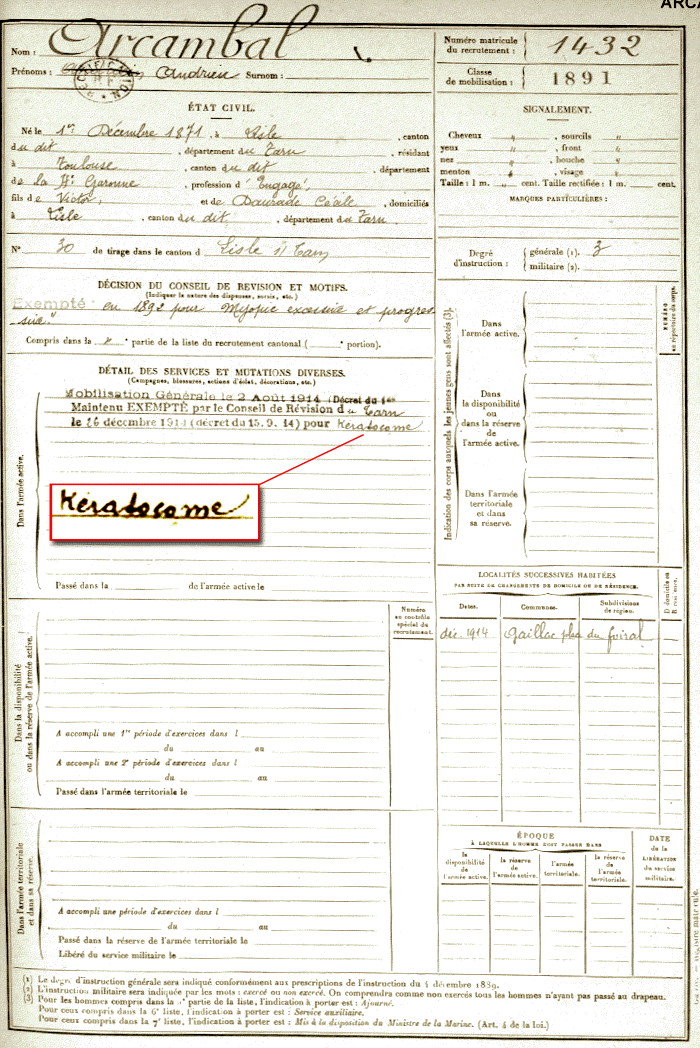 ARCA
Nom : Arcambal
Prénoms : Andrieu Surnom :
Numéro matricule du recrutement : 1432
Classe de mobilisation : 1891
ÉTAT CIVIL.
Né le 1er Décembre 1871, à Lisle, canton
du dit, département du Tarn, résidant
à Toulouse, canton du dit, département
de la Hte Garonne, profession d' Engagé,
fils de Victor, et de Daurade Cécile, domiciliés
à Lisle, canton du dit, département du Tarn
N° 30 de tirage dans le canton d Lisle s/ Tarn
SIGNALEMENT.
Cheveux " , sourcils "
yeux " , front "
nez " , bouche "
menton " , visage "
Taille : 1 m. " cent. Taille rectifiée : 1 m. cent.
MARQUES PARTICULIÈRES :
Degré d'instruction : générale (1). 3
militaire (2).
DÉCISION DU CONSEIL DE REVISION ET MOTIFS.
(Indiquer la nature des dispenses, sursis, etc.)
Exempté en 1892 pour Myopie excessive et progres-
sive."
Compris dans la partie de la liste du recrutement cantonal ( portion).
DÉTAIL DES SERVICES ET MUTATIONS DIVERSES.
(Campagnes, blessures, actions d'éclat, décorations, etc.)
Mobilisation Générale le 2 Août 1914 (Décret du 1er
Maintenu EXEMPTÉ par le Conseil de Révision du Tarn
le 26 décembre 1914 (décret du 15. 9. 14) pour Kératocome
Kératocome
Dans l'armée active.
Passé dans la de l'armée active le
Numéro au contrôle spécial du recrutement.
Dans la disponibilité ou dans la réserve de l'armée active.
A accompli une 1re période d'exercices dans l
du au
A accompli une 2e période d'exercices dans l
du au
Passé dans l'armée territoriale le
Dans l'armée territoriale et dans sa réserve.
A accompli une période d'exercices dans l
du au
Passé dans la réserve de l'armée territoriale le
Libéré du service militaire le
Indication des corps auxquels les jeunes gens sont affectés (3).
NUMÉRO au répertoire du corps.
Dans l'armée active.
Dans la disponibilité ou dans la réserve de l'armée active.
Dans l'armée territoriale et dans sa réserve.
LOCALITÉS SUCCESSIVES HABITÉES
PAR SUITE DE CHANGEMENTS DE DOMICILE OU DE RÉSIDENCE.
D domicile ou R résidence.
Dates. Communes. Subdivisions de région.
déc. 1914 Gaillac place du foiral
ÉPOQUE
À LAQUELLE L'HOMME DOIT PASSER DANS
DATE de la LIBÉRATION du service militaire.
la disponibilité de l'armée active.
la réserve de l'armée active.
l'armée territoriale.
la réserve de l'armée territoriale.
(1) Le degré d'instruction générale sera indiqué conformément aux prescriptions de l'instruction du 4 décembre 1889.
(2) L'instruction militaire sera indiquée par les mots : exercé ou non exercé. On comprendra comme non exercés tous les hommes n'ayant pas passé au drapeau.
(3) Pour les hommes compris dans la partie de la liste, l'indication à porter est : Ajourné.
Pour ceux compris dans la 6e liste, l'indication à porter est : Service auxiliaire.
Pour ceux compris dans la 7e liste, l'indication à porter est : Mis à la disposition du Ministre de la Marine. (Art. 4 de la loi.)